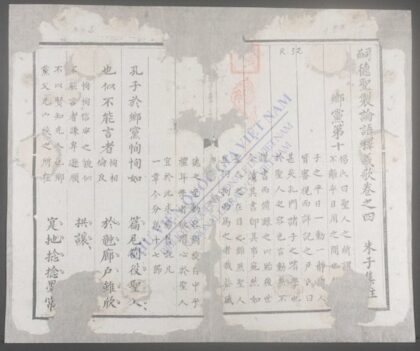 嗣德聖製論語釋義歌卷之四 朱子集註
鄉黨第十
楊氏曰聖人之所謂
不離乎日用之間也
子之平日一動一靜門人
皆審視而詳記之尹氏曰
甚矣孔門諸子之嗜學也
於聖人之容色言動無不
謹書而備錄之以貽後世
今讀其書即其事宛然如
聖人之在目也雖然聖人
豈拘拘而爲之者哉蓋盛
德之至動容周旋自中乎
禮耳學者欲潛心於聖人
宜於此求焉舊說凡
一章今分爲十七節
孔子於鄉黨恂恂如 篇尼役聖人
也似不能言者 恂相倫反 於廊户雖欣
恂恂信實之貌似
不能言者謙卑遜順
不以賢知先人也鄉
黨父兄宗族之所在
拱讓
寔他捻捻
THƯ VIỆN QUỐC GIA VIỆT NAM